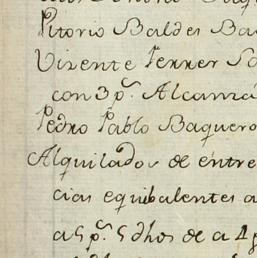 Pitorio Baldes Ba
Vizente Ferrer So
con 3 p.^s Alcanzá
Pedro Pablo Baquero
Alquilados de entre
cias equibalentes a
a 5 p.^s 5 dhos de a 1 p